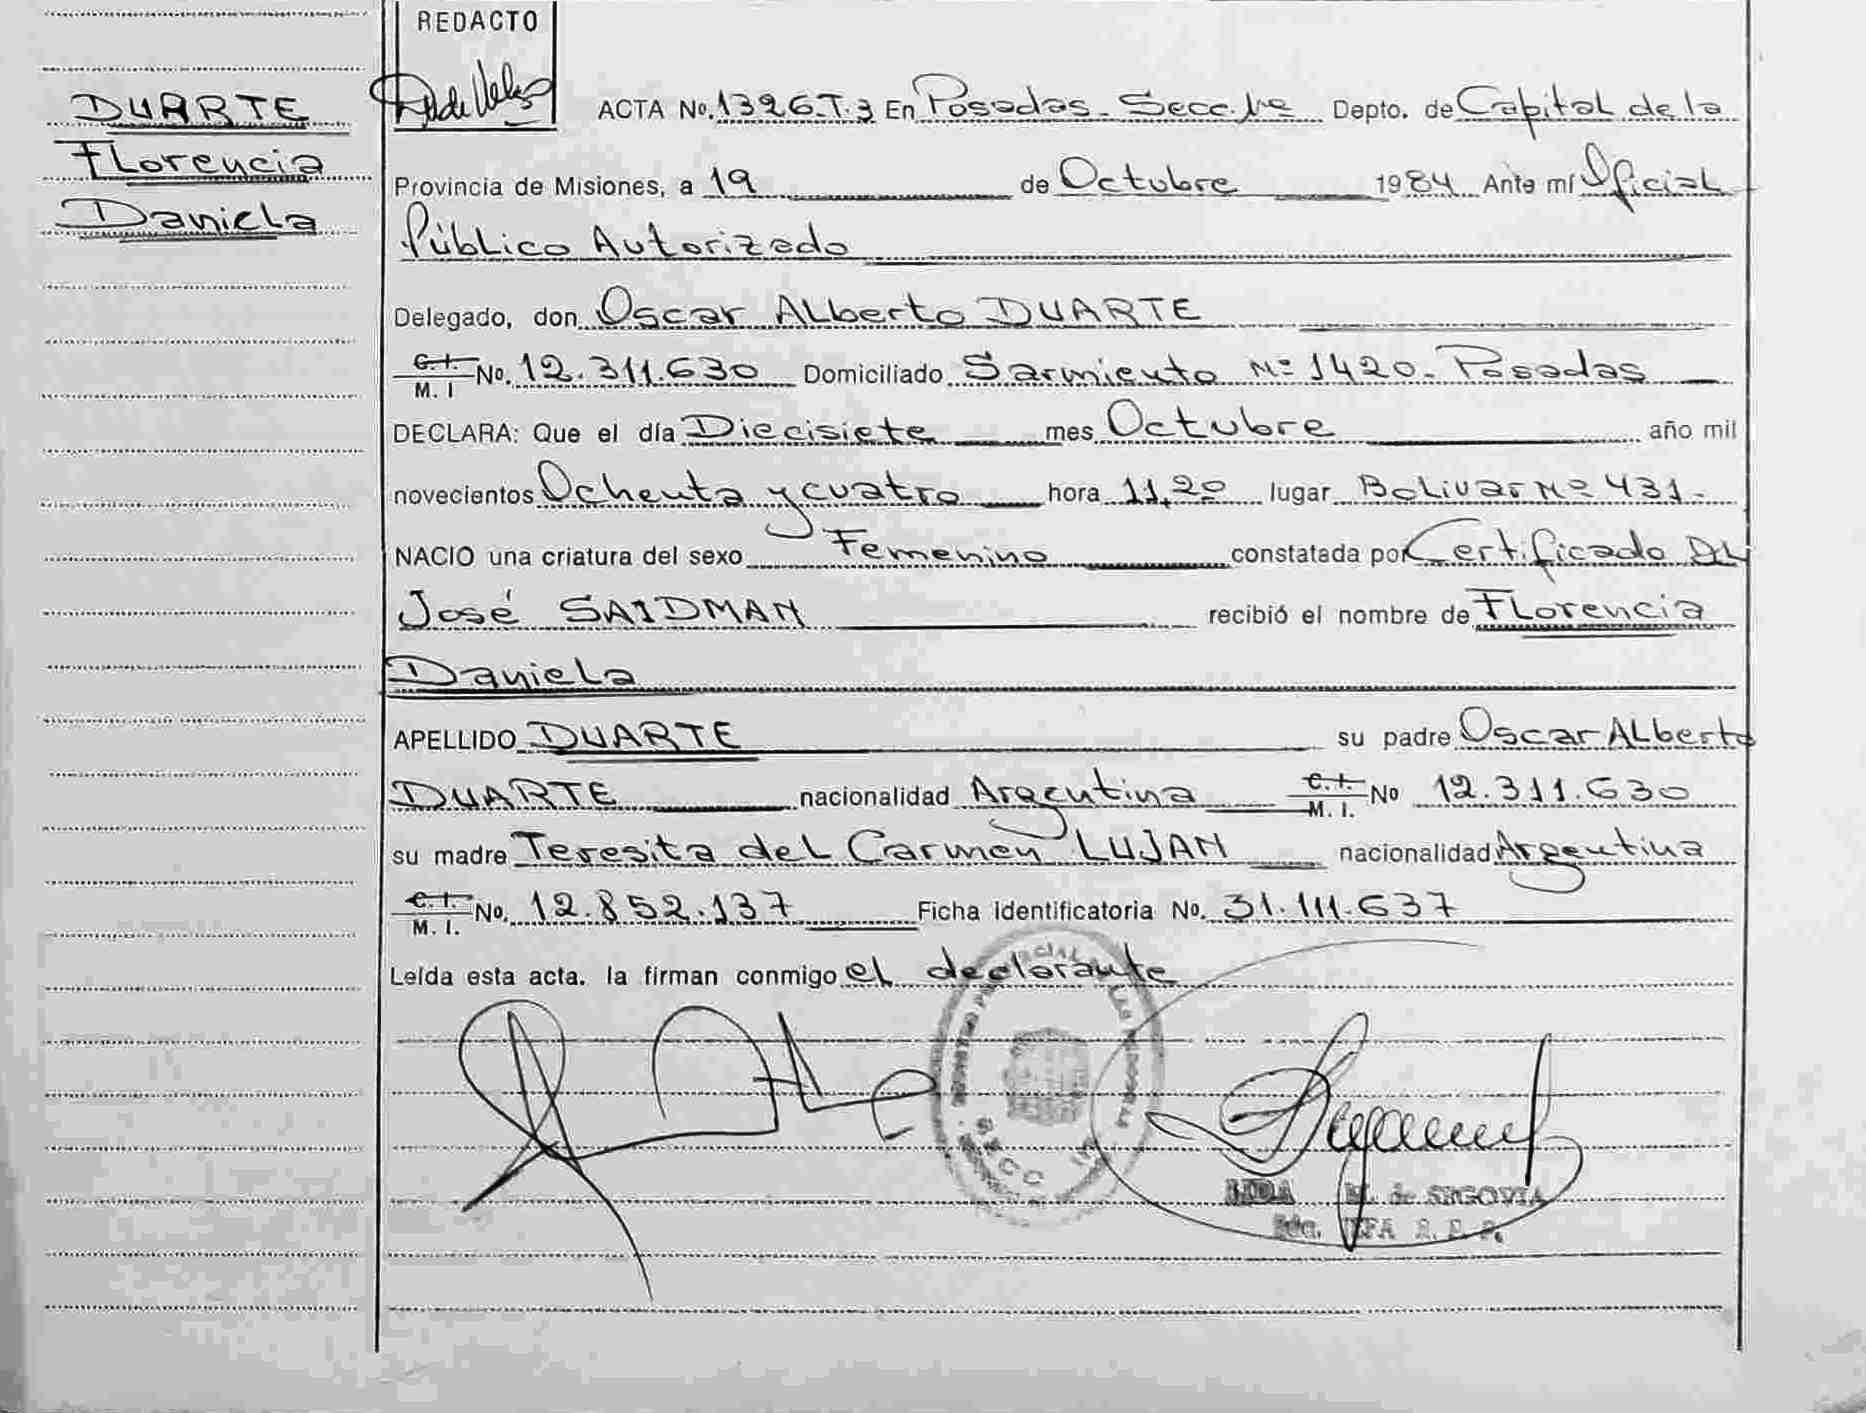 REDACTO
DUARTE
Florencia
Daniela
ACTA No. 1326.T.3 En Posadas - Secc. 1ra Depto. de Capital de la
Provincia de Misiones, a 19 de Octubre 1984 Ante mí Oficial
Público Autorizado
Delegado, don Oscar Alberto DUARTE
C.I. M. I No. 12.311.630 Domiciliado Sarmiento Nº 1420 - Posadas
DECLARA: Que el día Diecisiete mes Octubre año mil
novecientos Ochenta y cuatro hora 11,20 lugar Bolivar Nº 431.
NACIO una criatura del sexo Femenino constatada por Certificado
José SAIDMAN recibió el nombre de Florencia
Daniela
APELLIDO DUARTE su padre Oscar Alberto
DUARTE nacionalidad Argentina C.I. M. I. No 12.311.630
su madre Teresita del Carmen LUJAN nacionalidad Argentina
C.I. M. I. No. 12.852.137 Ficha Identificatoria No. 31.111.637
Leída esta acta. la firman conmigo el declarante
SECC
M. de SEGOVIA